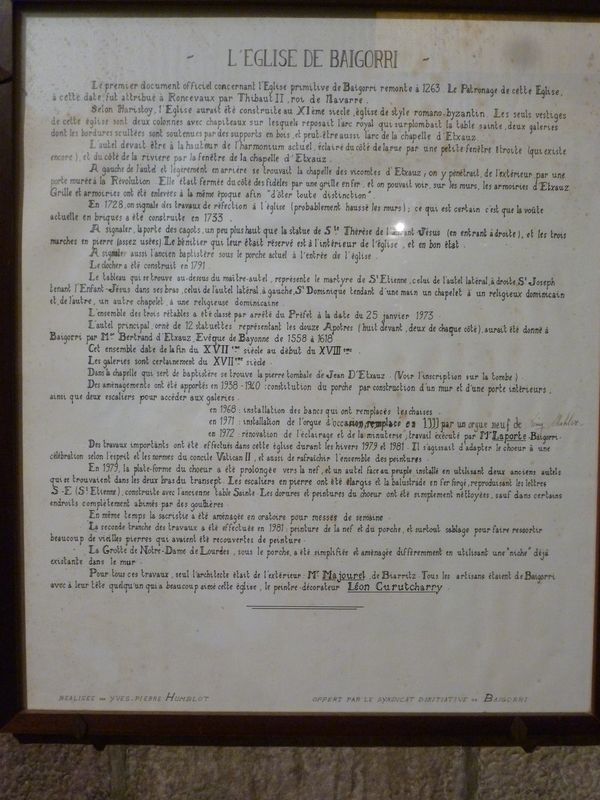 - L'EGLISE DE BAIGORRI -
Le premier document officiel concernant l'Eglise primitive de Baigorri remonte à 1263. Le Patronage de cette Eglise,
à cette date fut attribué à Roncevaux par Thibaut II, roi de Navarre.
Selon Haristoy, l'Eglise aurait été construite au XIème siècle, église de style romano-byzantin. Les seuls vestiges
de cette église sont deux colonnes avec chapiteaux sur lesquels reposait l'arc royal qui surplombait la table sainte, deux galeries
dont les bordures scultées sont soutenues par des supports en bois, et peut-être aussi l'arc de la chapelle d'Etxauz.
L'autel devait être à la hauteur de l'harmonium actuel, éclairé du côté de la rue par une petite fenêtre étroite (qui existe
encore), et du côté de la rivière par la fenêtre de la chapelle d'Etxauz.
A gauche de l'autel et légèrement en arrière se trouvait la chapelle des vicomtes d'Etxauz, on y pénétrait, de l'extérieur par une
porte murée à la Révolution. Elle était fermée du côté des fidèles par une grille en fer, et on pouvait voir, sur les murs, les armoiries d'Etxauz
Grille et armoiries ont été enlevées à la même époque afin "d'ôter toute distinction".
En 1728, on signale des travaux de réfection à l'église (probablement haussé les murs); ce qui est certain c'est que la voûte
actuelle en briques a été construite en 1733.
A signaler, la porte des cagots, un peu plus haut que la statue de Ste Thérèse de l'Enfant Jésus (en entrant à droite), et les trois
marches en pierre (assez usées). Le bénitier qui leur était réservé est à l'intérieur de l'église, et en bon état.
A signaler aussi l'ancien baptistère sous le porche actuel à l'entrée de l'église.
Le clocher a été construit en 1791.
Le tableau qui se trouve au-dessus du maître-autel, représente le martyre de St Etienne, celui de l'autel latéral, à droite, St Joseph
tenant l'Enfant-Jésus dans ses bras, celui de l'autel latéral, à gauche, St Dominique tendant d'une main un chapelet à un religieux dominicain
et, de l'autre, un autre chapelet, à une religieuse dominicaine.
L'ensemble des trois rétables a été classé par arrêté du Préfet à la date du 25 janvier 1973.
L'autel principal, orné de 12 statuettes représentant les douze Apôtres (huit devant, deux de chaque côté), aurait été donné à
Baigorri par Mgr Bertrand d'Etxauz, Evêque de Bayonne de 1558 à 1618
Cet ensemble date de la fin du XVIIème siècle au début du XVIIIème.
Les galeries sont certainement du XVIIème siècle.
Dans la chapelle qui sert de baptistère se trouve la pierre tombale de Jean D'Etxauz. (Voir l'inscription sur la tombe).
Des aménagements ont été apportés en 1938-1940: constitution du porche par construction d'un mur et d'une porte intérieurs,
ainsi que deux escaliers pour accéder aux galeries.
en 1968: installation des bancs qui ont remplacés les chaises.
en 1971: installation de l'orgue d'occasion, remplacé en par un orgue neuf de
en 1972: rénovation de l'éclairage et de la minuterie, travail exécuté par Mr Laporte. Baigorri.
Des travaux importants ont été effectués dans cette église durant les hivers 1979 et 1981. Il s'agissait d'adapter le choeur à une
célébration selon l'esprit et les normes du concile Vatican II, et aussi de rafraîchir l'ensemble des peintures.
En 1979, la plate-forme du choeur a été prolongée vers la nef, et un autel face au peuple installé en utilisant deux anciens autels
qui se trouvaient dans les deux bras du transept. Les escaliers en pierre ont été élargis et la balustrade en fer forgé, reproduisant les lettres
S-E (St Etienne), construite avec l'ancienne table Sainte. Les dorures et peintures du choeur ont été simplement nettoyées, sauf dans certains
endroits complètement abimés par des gouttières.
En même temps la sacristie a été aménagée en oratoire pour messes de semaine.
La seconde tranche des travaux a été effectuée en 1981: peinture de la nef et du porche, et surtout sablage pour faire ressortir
beaucoup de vieilles pierres qui avaient été recouvertes de peinture.
La Grotte de Notre-Dame de Lourdes, sous le porche, a été simplifiée et aménagée différemment en utilisant une "niche" déjà
existante dans le mur.
Pour tous ces travaux, seul l'architecte était de l'extérieur: Mr Majourel, de Biarritz. Tous les artisans étaient de Baigorri
avec à leur tête quelqu'un qui a beaucoup aimé cette église, le peintre-décorateur Léon Curutcharry.
REALISEE PAR YVES-PIERRE HUMBLOT
OFFERT PAR LE SYNDICAT D'INITIATIVE DE BAIGORRI